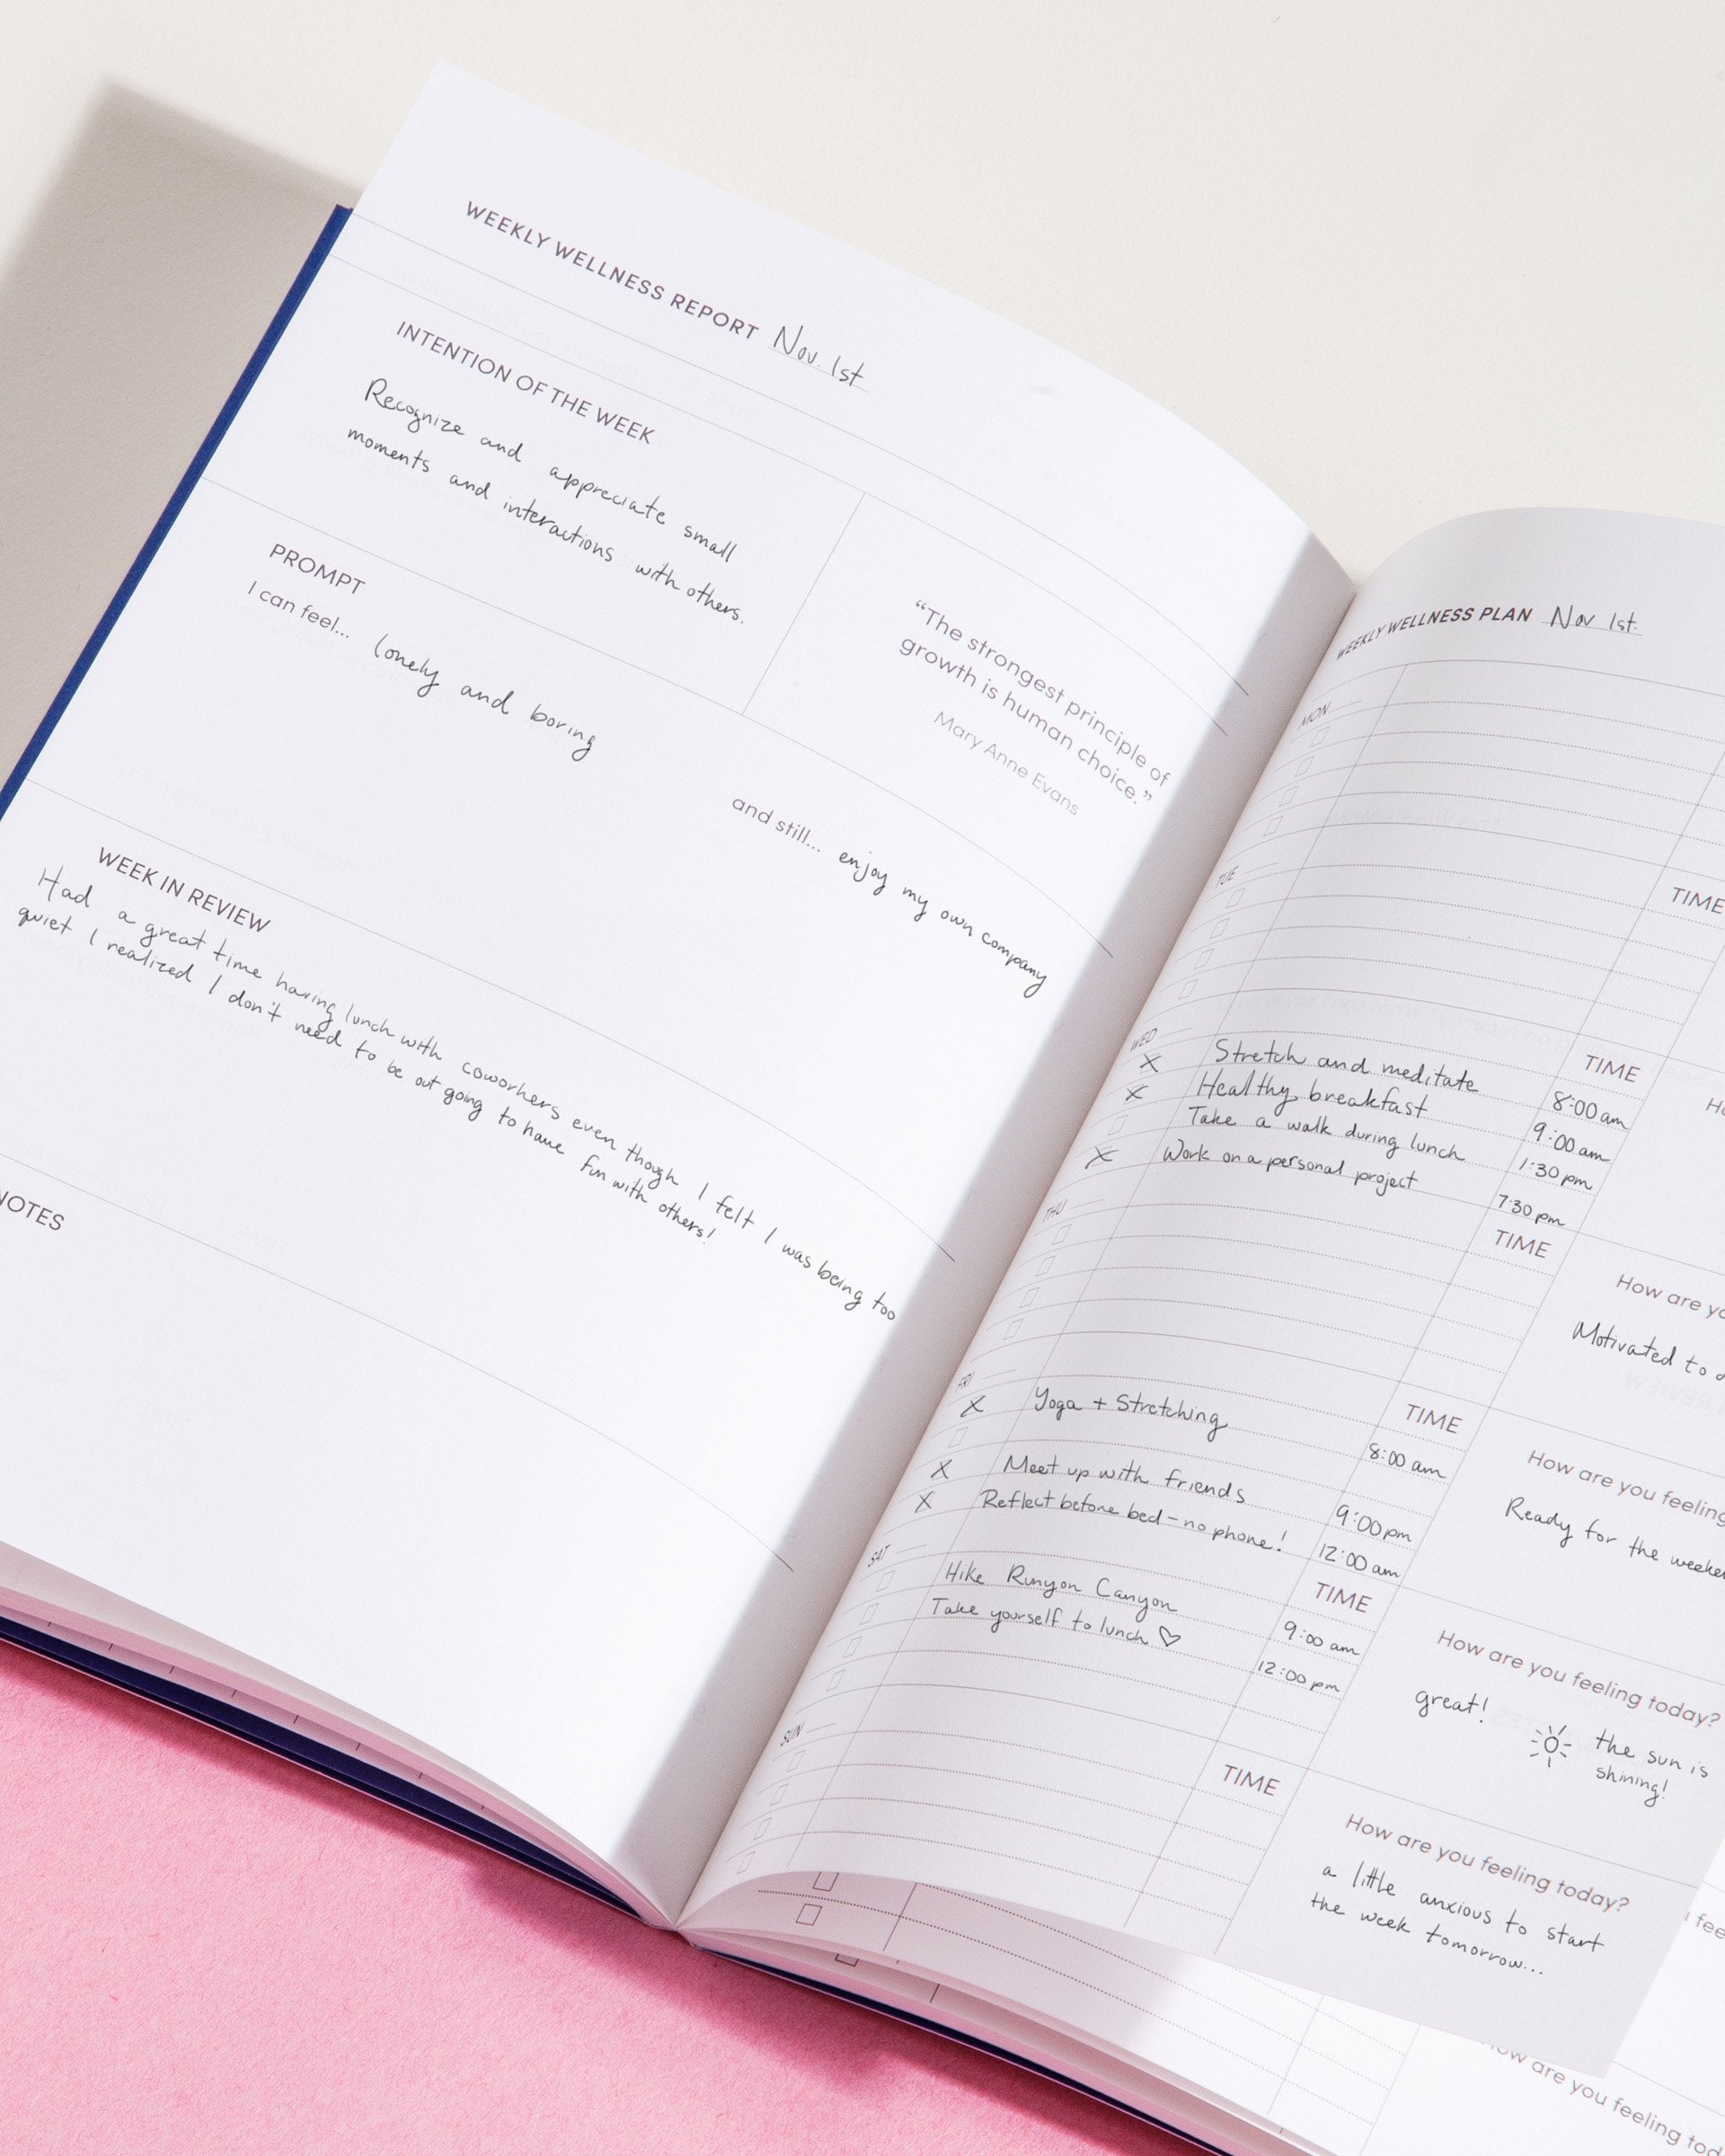 WEEKLY WELLNESS REPORT Nov. 1st
INTENTION OF THE WEEK
Recognize and appreciate small
moments and interactions with others.
"The strongest principle of
growth is human choice."
Mary Anne Evans
PROMPT
I can feel... lonely and boring
and still... enjoy my own company
WEEK IN REVIEW
Had a great time having lunch with coworkers even though I felt I was being too
quiet I realized I don't need to be out going to have fun with others!
NOTES
WEEKLY WELLNESS PLAN Nov 1st.
MON
TUE
TIME
WED
TIME
Stretch and meditate 8:00 am
Healthy breakfast 9:00 am
Take a walk during lunch 1:30 pm
Work on a personal project 7:30 pm
THU
TIME
How are
Motivated to
FRI
TIME
Yoga + Stretching 8:00 am
Meet up with friends 9:00 pm
Reflect before bed - no phone! 12:00 am
How are you feeling
Ready for the
SAT
TIME
Hike Runyon Canyon 9:00 am
Take yourself to lunch ♡ 12:00 pm
How are you feeling today?
great!
the sun is
shining!
SUN
TIME
How are you feeling today?
a little anxious to start
the week tomorrow...
are you feeling